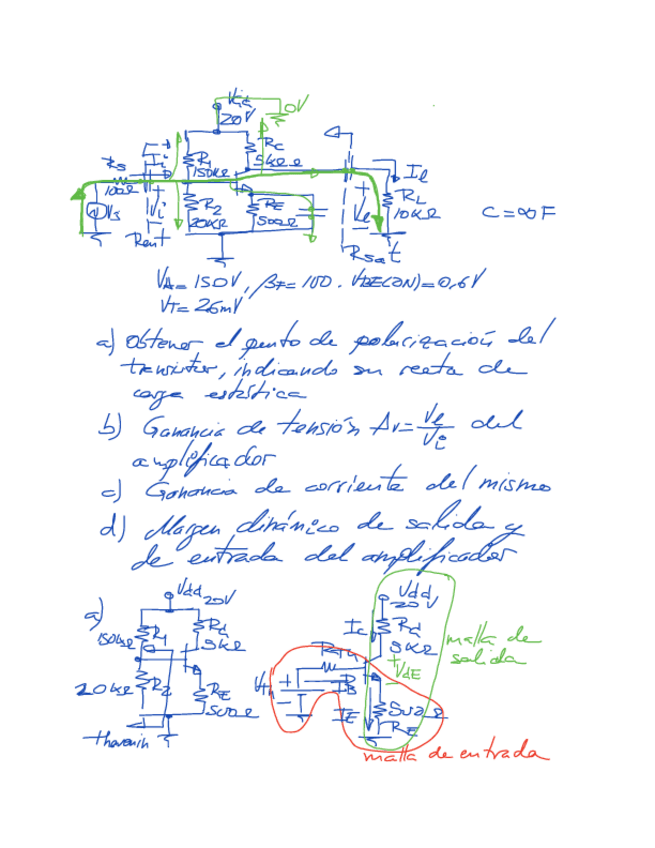 20V
0V
RC
5kΩ
RS
100Ω
Ii
R1
150kΩ
Il
VS
Vi
R2
20kΩ
RE
500Ω
Vl
RL
10kΩ
C=∞F
Rent
Rsat
VA=150V, βF=100. VBE(ON)=0,6V
VT=26mV
a) Obtener el punto de polarización del
transistor, indicando su recta de
carga estática
b) Ganancia de tensión Av=Vl/Vi del
amplificador
c) Ganancia de corriente del mismo
d) Margen dinámico de salida y
de entrada del amplificador
a)
Vdd 20V
150kΩ R1
Rd
5kΩ
20kΩ R2
RE
500Ω
Vdd
20V
IC
Rd
5kΩ
malla de
salida
RTH
IB
IE
500Ω
RE
malla de entrada